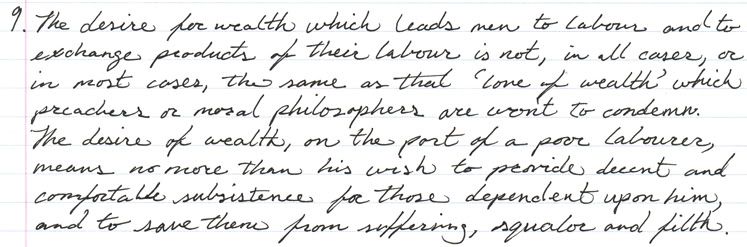 9. The desire for wealth which leads men to labour and to
exchange products of their labour is not, in all cases, or
in most cases, the same as that 'love of wealth' which
preachers or moral philosophers are wont to condemn.
The desire of wealth, on the part of a poor labourer,
means no more than his wish to provide decent and
comfortable subsistence for those dependent upon him,
and to save them from suffering, squalor and filth.